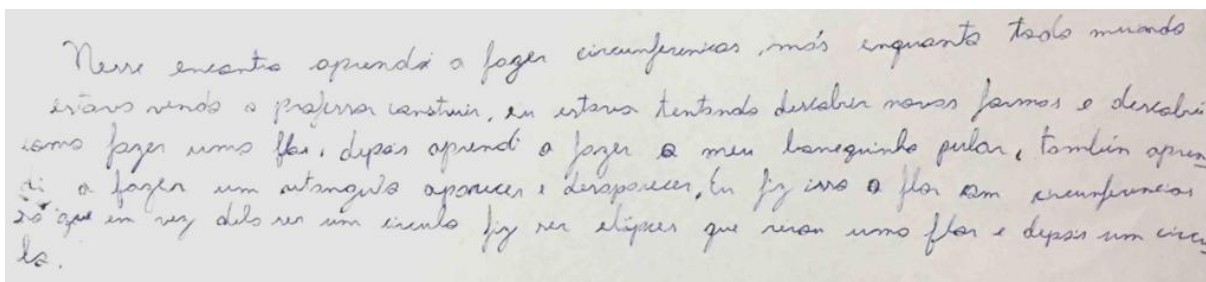 Nesse encontro aprendi a fazer circunferenicas, más enquanto todo mundo
estava vendo a professora construir, eu estava tentando descobrir novas formas e descobri
como fazer uma flor, depois aprendi a fazer o meu bonequinho pular, também apren
di a fazer um retangulo aparecer e desaparecer, Eu fiz isso a flor com circunferencias
só que em vez dela ser um circulo fiz ser elipses que virou uma flor e depois um circu
lo.